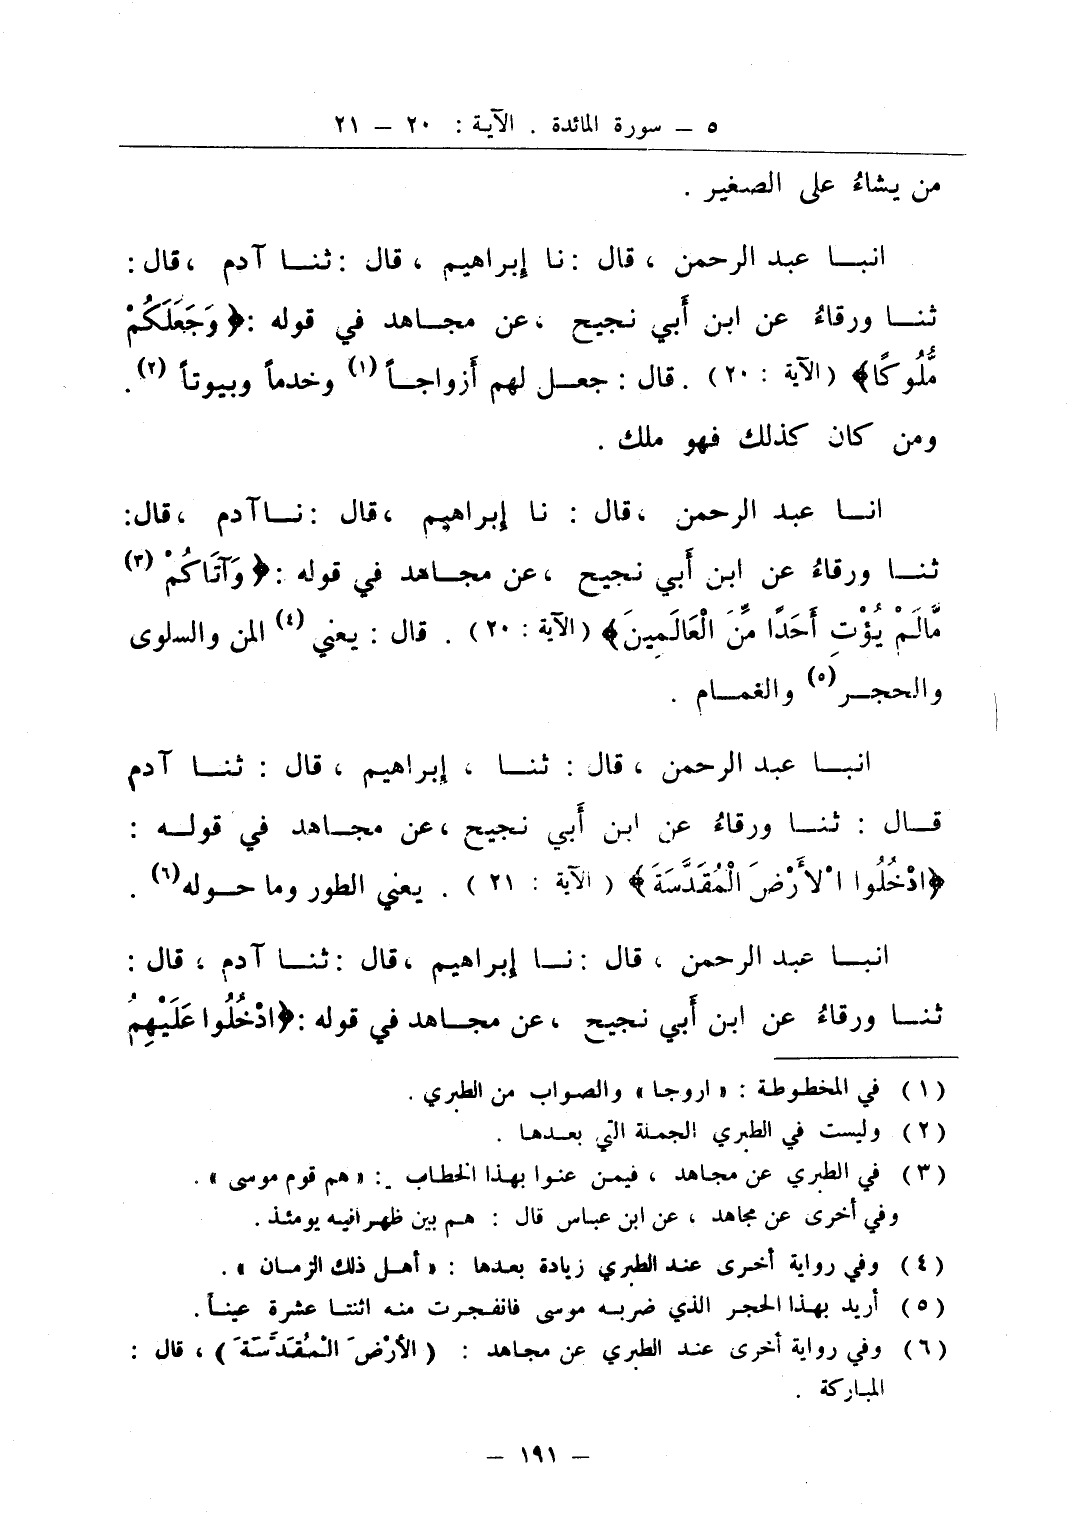 ٥ – سورة المائدة . الآية : ٢٠ – ٢١
من يشاءُ على الصغير .
انبـا عبد الرحمن ، قال : نا إبراهيم ، قال : ثنـا آدم ، قال :
ثنـا ورقاءُ عن ابن أَبي نجيح ، عن مجـاهد في قوله : ﴿ وَجَعَلَكُمْ
مُّلُوكًا﴾ ( الآية : ٢٠ ) . قال : جعـل لهم أَزواجـاً (١) وخدماً وبيوتاً (٢) .
ومن كان كذلك فهو ملك .
انـا عبد الرحمن ، قال : نا إبراهيم ، قال : نـا آدم ، قال :
ثنـا ورقاءُ عن ابن أَبي نجيح ، عن مجـاهد في قوله : ﴿ وَآتَاكُمْ (٣)
مَّالَمْ يُؤْتِ أَحَدًا مِّنَ الْعَالَمِينَ﴾ ( الآية : ٢٠ ) . قال : يعني (٤) المن والسلوى
والحجـر (٥) والغمـام .
انبـا عبد الرحمن ، قال : ثنـا ، إبراهيم ، قال : ثنـا آدم
قـال : ثنـا ورقاءُ عن ابن أَبي نجيح ، عن مجـاهد في قولـه :
﴿ادْخُلُوا الْأَرْضَ الْمُقَدَّسَةَ ﴾ ( الآية : ٢١ ) . يعني الطور وما حـوله (٦) .
انبـا عبد الرحمن ، قال : نـا إبراهيم ، قال : ثنـا آدم ، قال :
ثنـا ورقاءُ عن ابن أَبي نجيح ، عن مجـاهد في قوله : ﴿ادْخُلُوا عَلَيْهِمُ
(١) في المخطوطة : « اروجا » والصواب من الطبري .
(٢) وليست في الطبري الجملة التي بعـدها .
(٣) في الطبري عن مجاهد ، فيمن عنوا بهذا الخطاب : « هم قوم موسى » .
وفي أخرى عن مجاهد ، عن ابن عباس قال : هـم بين ظهرانيه يومئذ .
(٤) وفي رواية أخرى عند الطبري زيادة بعدها : « أهل ذلك الزمان » .
(٥) أريد بهذا الحجر الذي ضربه موسى فانفجرت منه اثنتا عشرة عيناً .
(٦) وفي رواية أخرى عند الطبري عن مجاهد : ( الأرْضَ الْمُقَدَّسَةَ ) ، قال :
المباركة .
– ١٩١ –